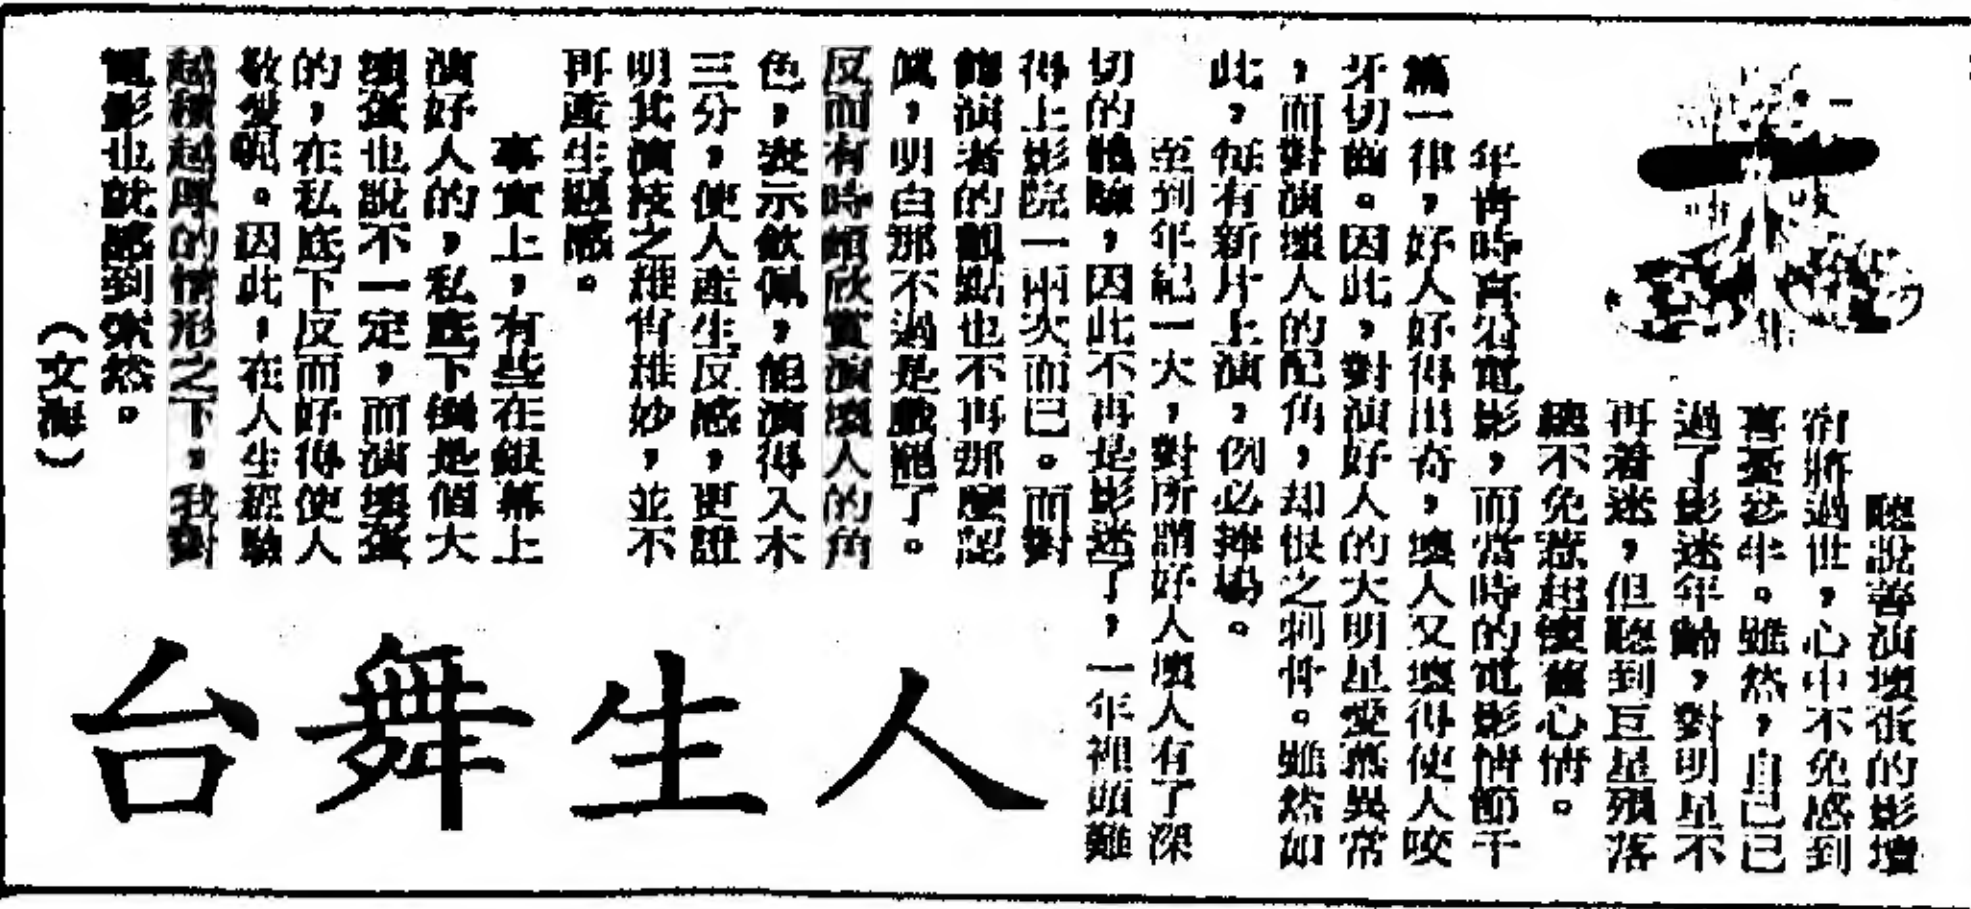 人生舞台
聽說善演壞蛋的影壇
宿將過世，心中不免感到
喜憂參半。雖然，自己已
過了影迷年齡，對明星不
再着迷，但聽到巨星殞落
總不免惹起懷舊心情。
年青時喜看電影，而當時的電影情節千
篇一律，好人好得出奇，壞人又壞得使人咬
牙切齒。因此，對演好人的大明星愛慕異常
，而對演壞人的配角，却恨之刺骨。雖然如
此，每有新片上演，例必捧場。
至到年紀一大，對所謂好人壞人有了深
切的體驗，因此不再是影迷了，一年裡頭難
得上影院一兩次而已。而對
飾演者的觀點也不再那麼認
真，明白那不過是戲說了。
反而有時能欣賞演壞人的角
色，表示欽佩，能演得入木
三分，使人產生反感，更證
明其演技之維肖維妙，並不
再產生惡感。
事實上，有些在銀幕上
演好人的，私底下倒是個大
壞蛋也說不一定，而演壞蛋
的，在私底下反而好得使人
敬愛呢。因此，在人生經驗
越積越厚的情形之下，我對
電影也就感到索然。
（文海）